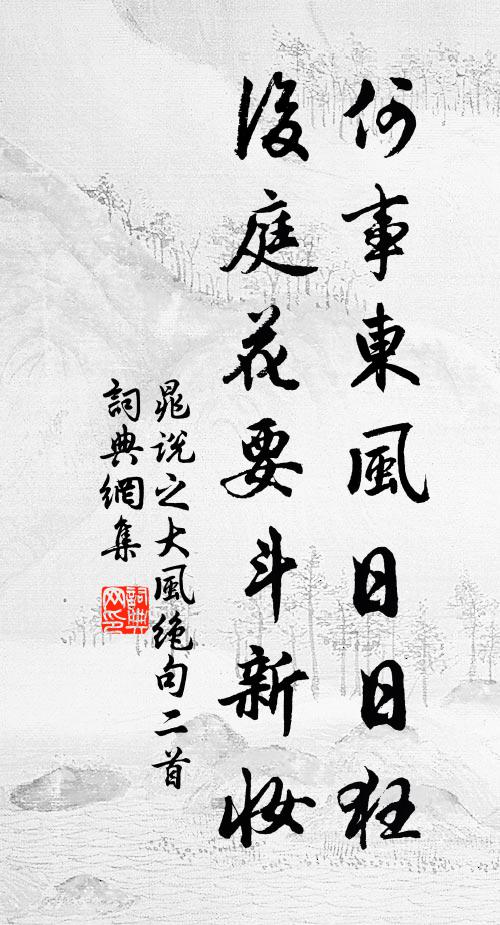 何事東風日日狂
後庭花要斗新妝
晁說之大風絶句二首
詞典網集
詞典網印